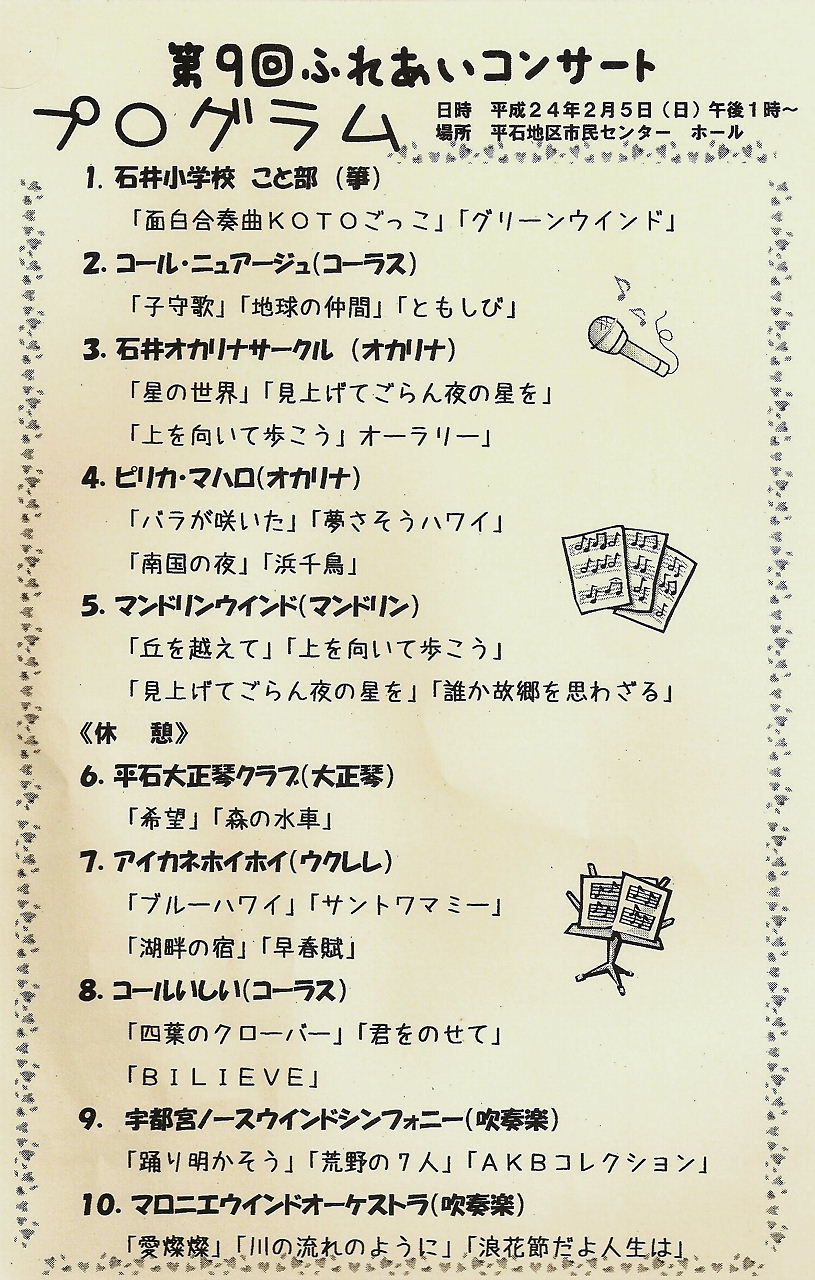 第9回ふれあいコンサート
プログラム
日時　平成24年2月5日（日）午後1時～
場所　平石地区市民センター　ホール
1. 石井小学校　こと部　（箏）
「面白合奏曲ＫＯＴＯごっこ」「グリーンウインド」
2. コール・ニュアージュ（コーラス）
「子守歌」「地球の仲間」「ともしび」
3. 石井オカリナサークル　（オカリナ）
「星の世界」「見上げてごらん夜の星を」
「上を向いて歩こう」オーラリー」
4. ピリカ・マハロ（オカリナ）
「バラが咲いた」「夢さそうハワイ」
「南国の夜」「浜千鳥」
5. マンドリンウインド（マンドリン）
「丘を越えて」「上を向いて歩こう」
「見上げてごらん夜の星を」「誰か故郷を思わざる」
《休　憩》
6. 平石大正琴クラブ（大正琴）
「希望」「森の水車」
7. アイカネホイホイ（ウクレレ）
「ブルーハワイ」「サントワマミー」
「湖畔の宿」「早春賦」
8. コールいしい（コーラス）
「四葉のクローバー」「君をのせて」
「ＢＩＬＩＥＶＥ」
9.　宇都宮ノースウインドシンフォニー（吹奏楽）
「踊り明かそう」「荒野の７人」「ＡＫＢコレクション」
10. マロニエウインドオーケストラ（吹奏楽）
「愛燦燦」「川の流れのように」「浪花節だよ人生は」